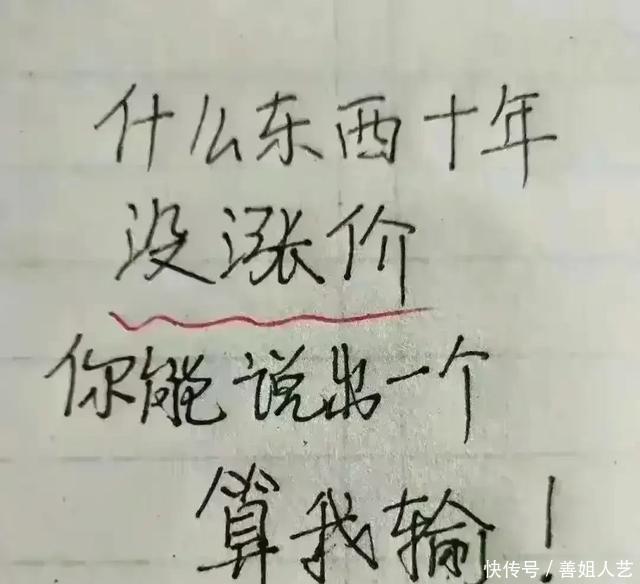 什么东西十年
没涨价
你能说出一个
算我输！
快传号／善姐人艺